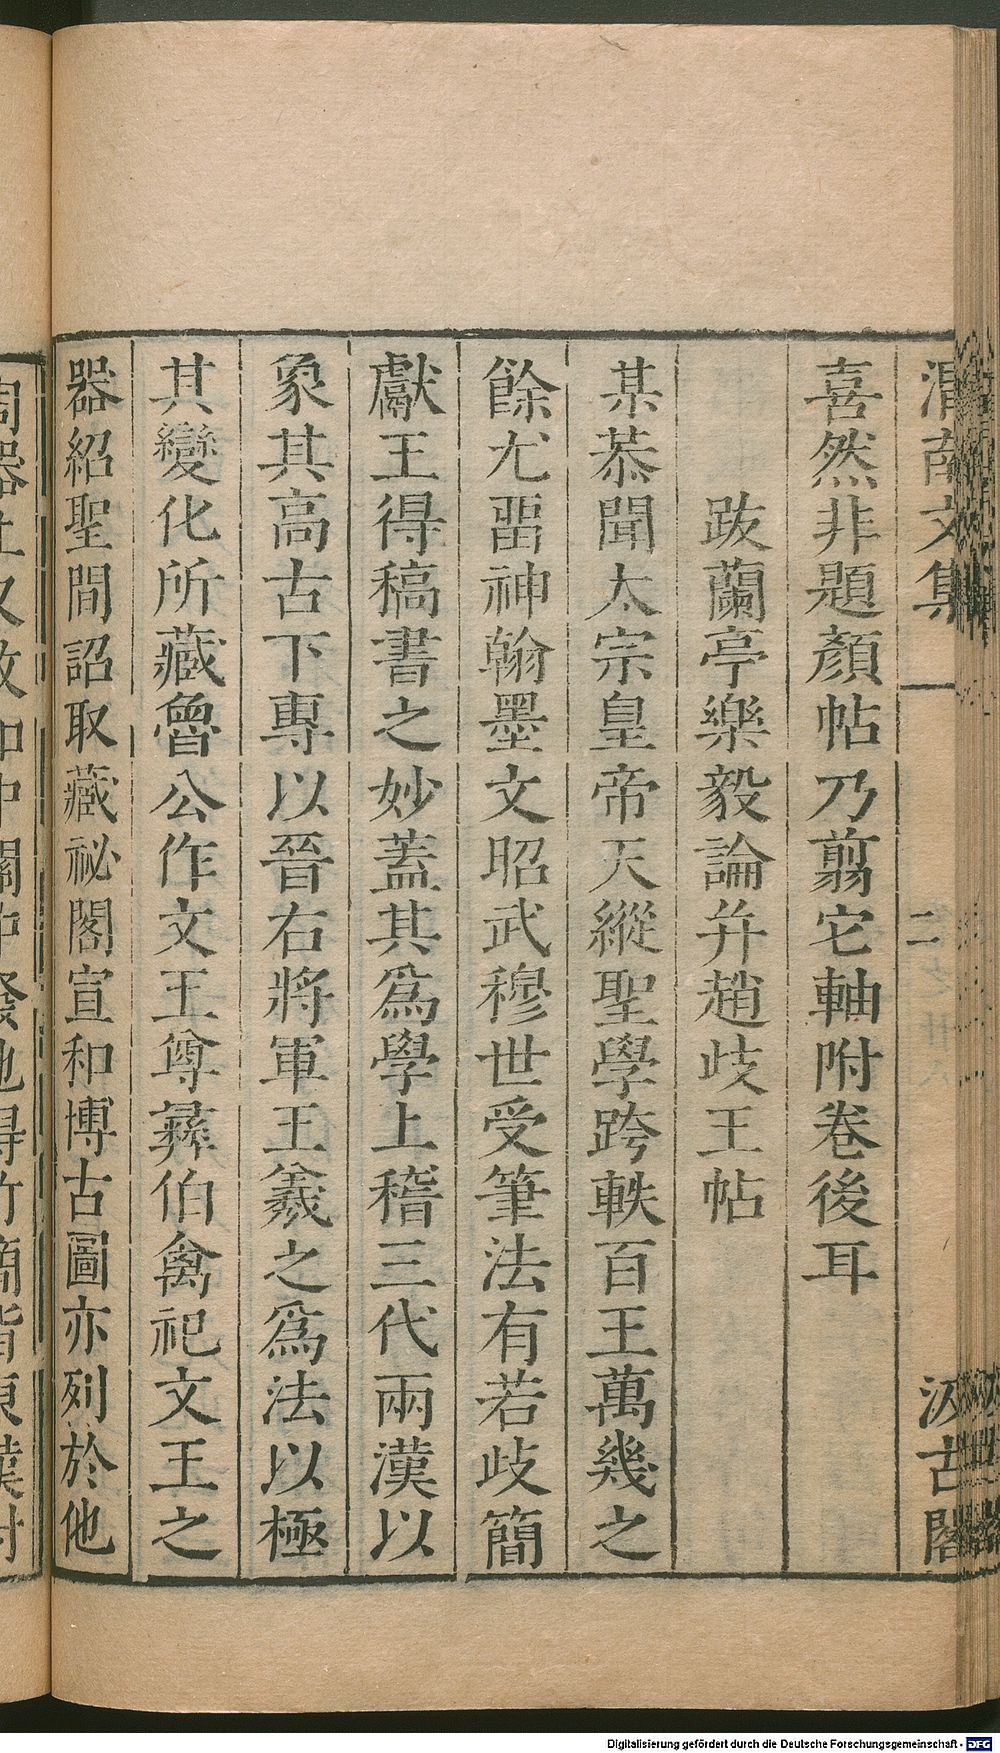 渭南文集
二
汲古閣
喜然非題顏帖乃翦它軸附卷後耳
跋蘭亭樂毅論幷趙岐王帖
某恭聞太宗皇帝天縱聖學跨軼百王萬幾之
餘尤畱神翰墨文昭武穆世受筆法有若岐簡
獻王得稿書之妙蓋其爲學上稽三代兩漢以
象其高古下專以晉右將軍王羲之爲法以極
其變化所藏魯公作文王尊彝伯禽祀文王之
器紹聖間詔取藏祕閣宣和博古圖亦列於他
Digitalisierung gefördert durch die Deutsche Forschungsgemeinschaft - DFG